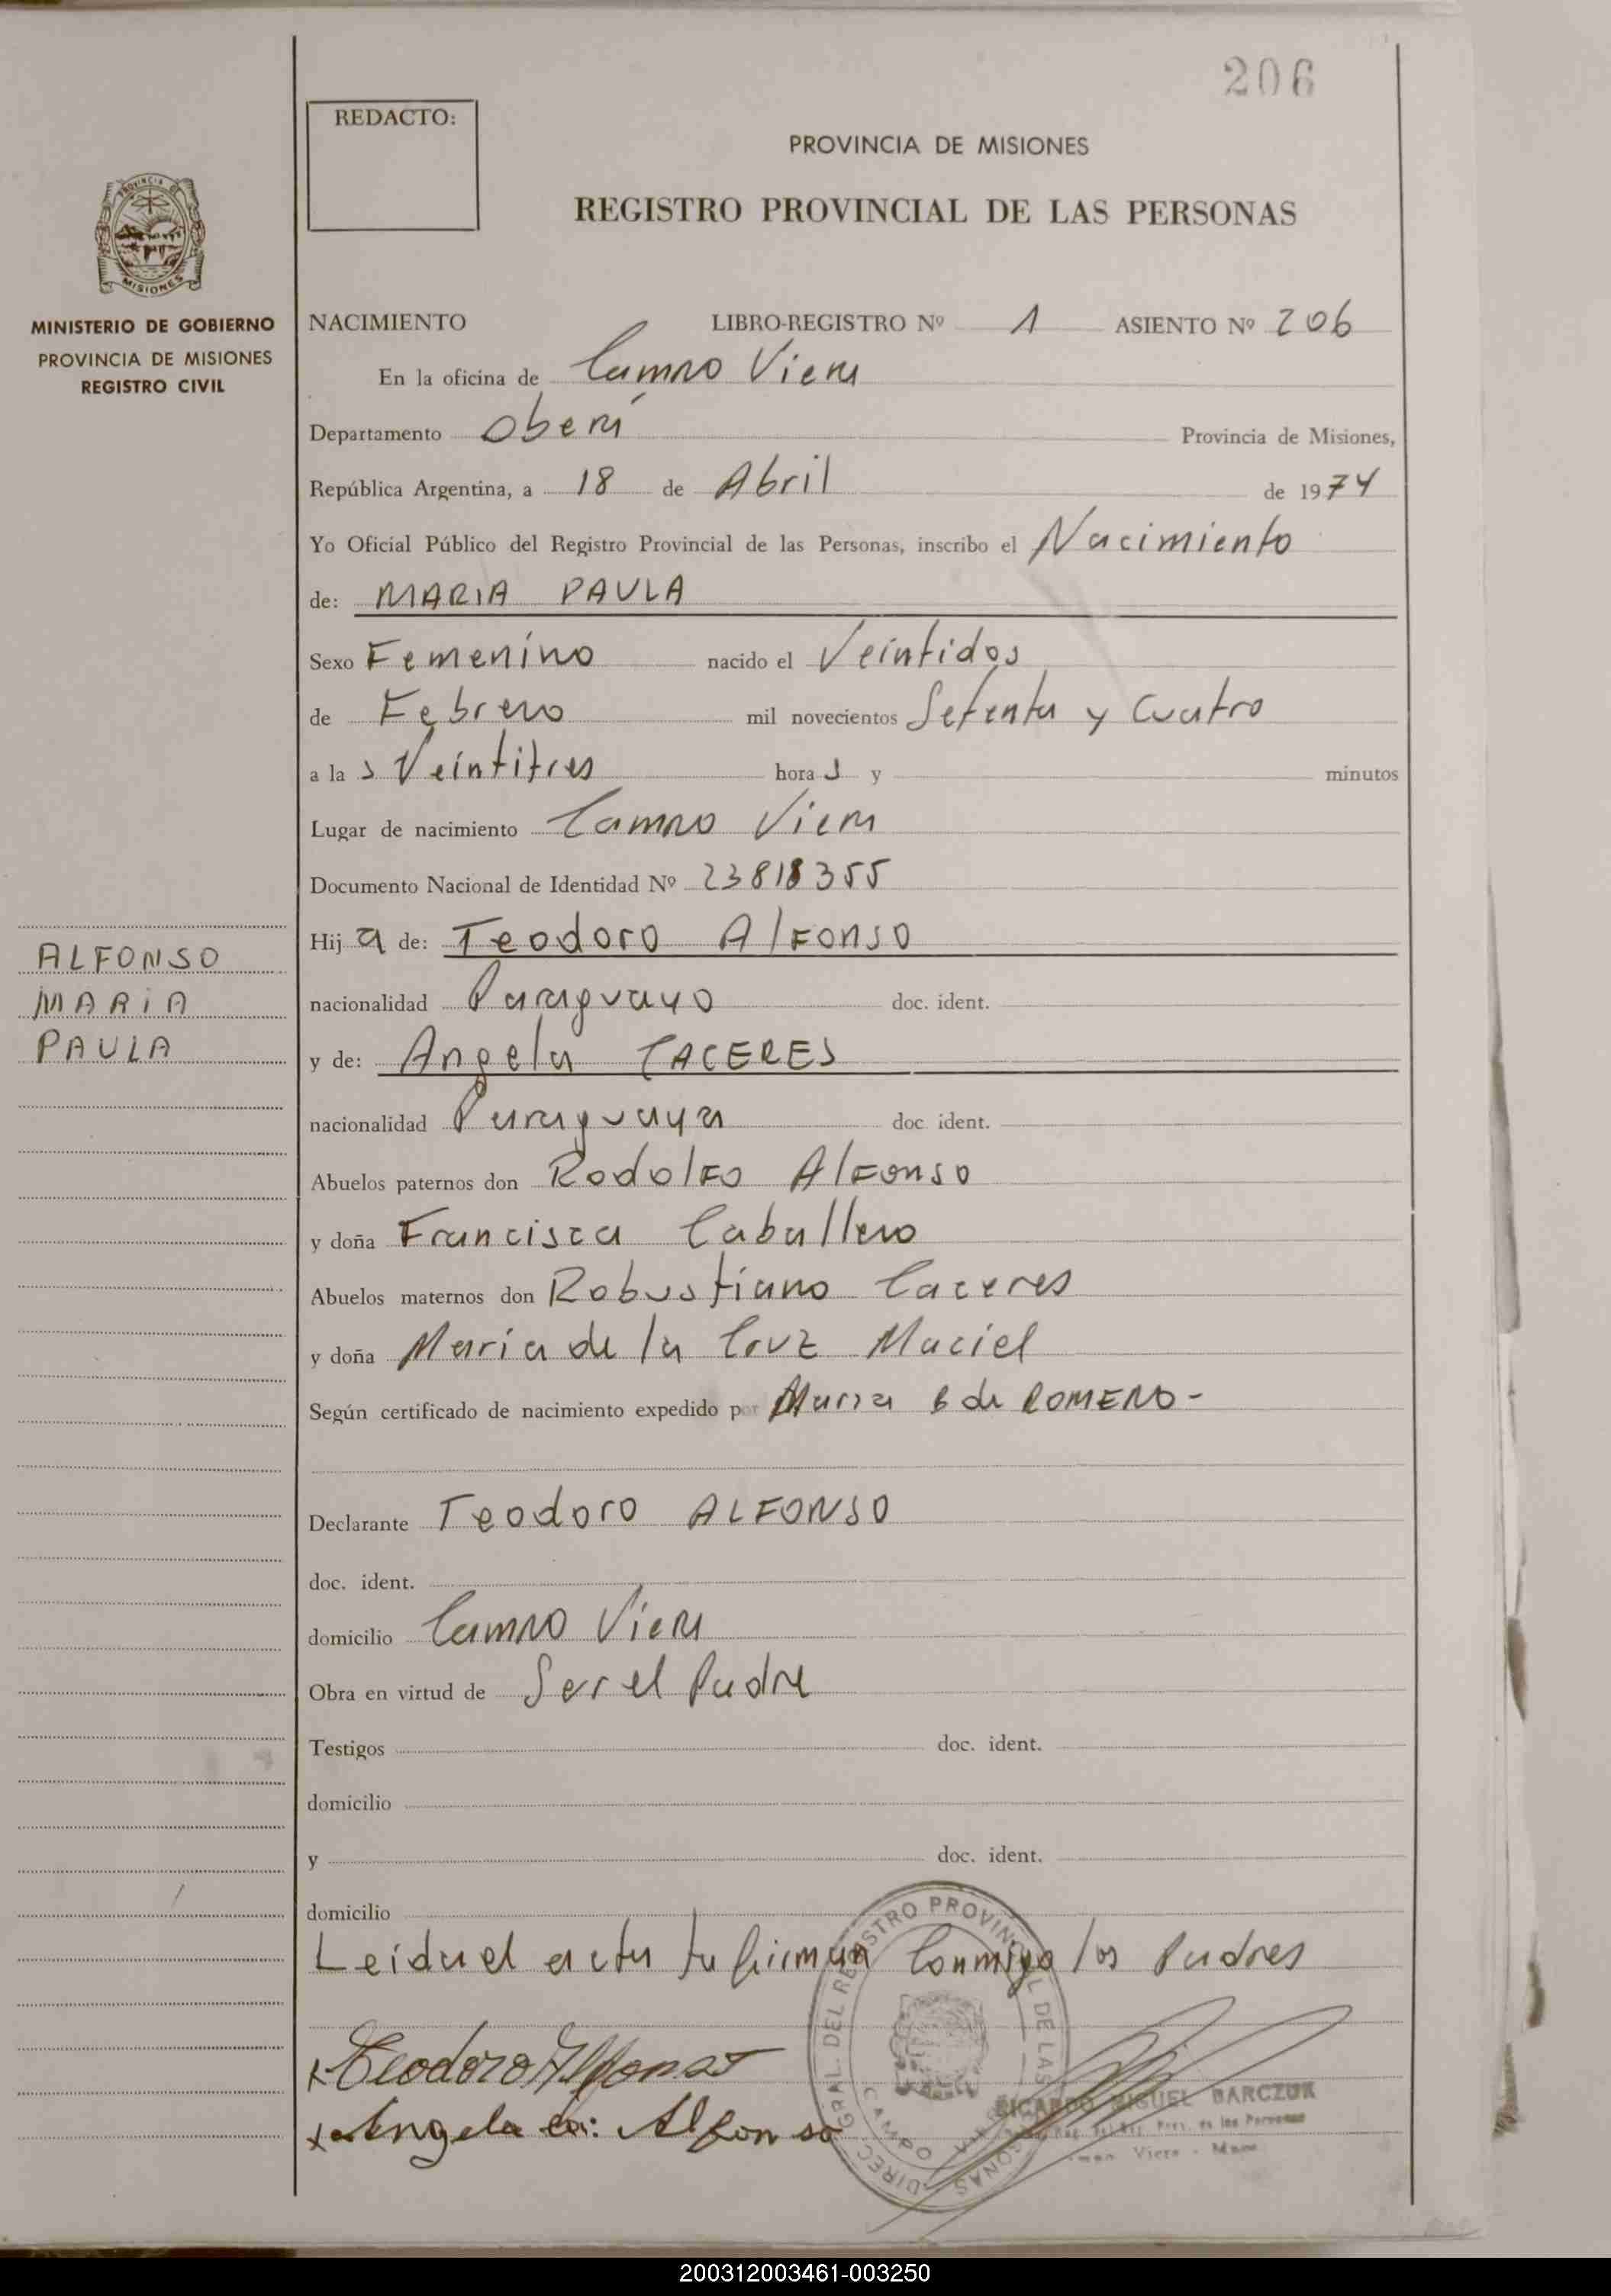 206
REDACTO:
PROVINCIA DE MISIONES
REGISTRO PROVINCIAL DE LAS PERSONAS
PROVINCIA DE
MISIONES
MINISTERIO DE GOBIERNO
PROVINCIA DE MISIONES
REGISTRO CIVIL
NACIMIENTO LIBRO-REGISTRO Nº 1 ASIENTO Nº 206
En la oficina de Campo Viera
Departamento Oberá Provincia de Misiones,
República Argentina, a 18 de Abril de 1974
Yo Oficial Público del Registro Provincial de las Personas, inscribo el Nacimiento
de: MARIA PAULA
Sexo Femenino nacido el Veintidos
de Febrero mil novecientos Setenta y Cuatro
a las Veintitres horas y minutos
Lugar de nacimiento Campo Viera
Documento Nacional de Identidad Nº 23818355
Hija de: Teodoro Alfonso
nacionalidad Paraguayo doc. ident.
y de: Angela CACERES
nacionalidad Paraguaya doc ident.
Abuelos paternos don Rodolfo Alfonso
y doña Francisca Caballero
Abuelos maternos don Robustiano Caceres
y doña Maria de la Cruz Maciel
Según certificado de nacimiento expedido por Maria B de ROMERO-
ALFONSO
MARIA
PAULA
Declarante Teodoro ALFONSO
doc. ident.
domicilio Campo Viera
Obra en virtud de Ser el Padre
Testigos doc. ident.
domicilio
y doc. ident.
domicilio
Leida el acta la firman Conmigo los Padres
x Teodoro Alfonso
x Angela de: Alfonso
DIREC. GRAL. DEL REGISTRO PROVINCIAL DE LAS PERSONAS
CAMPO VIERA
RICARDO MIGUEL BARCZUK
Reg. Prov. de las Personas
Campo Viera - Mnes
200312003461-003250